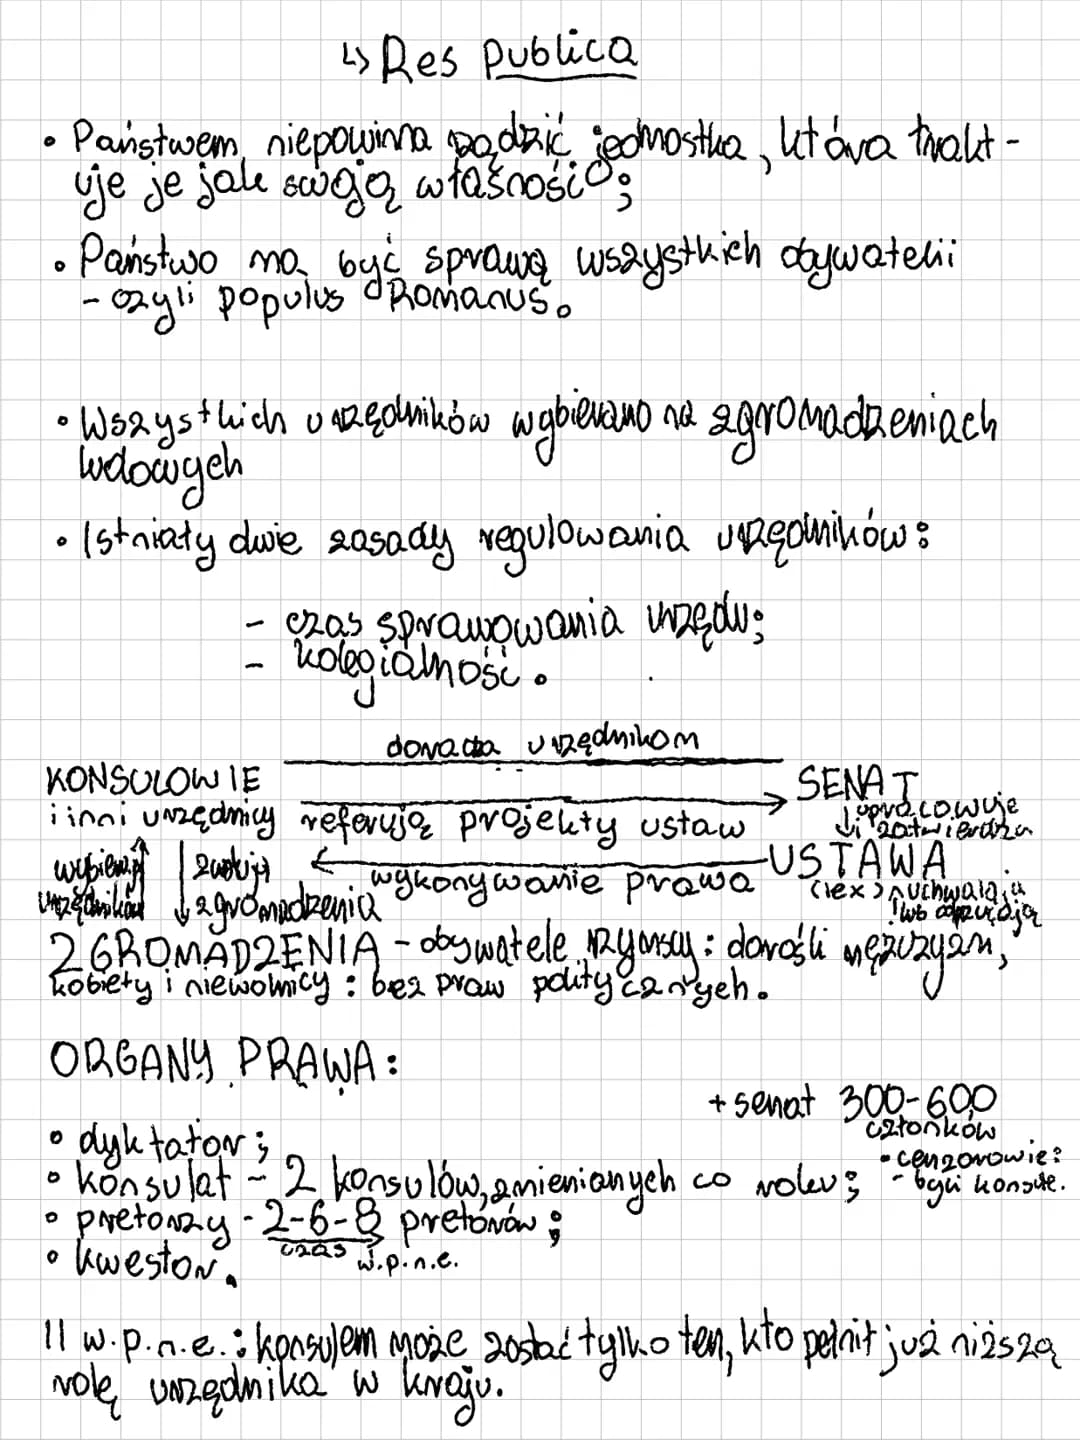 ↳ Res publica
• Państwem niepowinna rządzić jednostka, która trakt-
uje je jak swoją własność;
• Państwo ma być sprawą wszystkich obywatelii
- czyli populus Romanus.
• Wszystkich urzędników wybierano na zgromadzeniach
ludowych
• Istniały dwie zasady regulowania urzędników:
- czas sprawowania urzędu;
- kolegialność.
doradza urzędnikom
KONSULOWIE
i inni urzędnicy
referują projekty ustaw
SENAT
↓ opracowuje
i zatwierdza
wybierają
urzędników
↓ zwołują
zgromadzenia
wykonywanie prawa
USTAWA
(lex) uchwalają
lub odrzucają
ZGROMADZENIA - obywatele rzymscy: dorośli mężczyzn,
kobiety i niewolnicy: bez praw politycznych.
ORGANY PRAWA:
+ senat 300-600
członków
• dyktator;
• cenzorowie:
- byli konsule.
• konsulat - 2 konsulów, zmienianych co roku;
• pretorzy - 2-6-8 pretorów;
czas w.p.n.e.
• kwestor.
II w.p.n.e.: konsulem może zostać tylko ten, kto pełnił już niższą
rolę urzędnika w kraju.